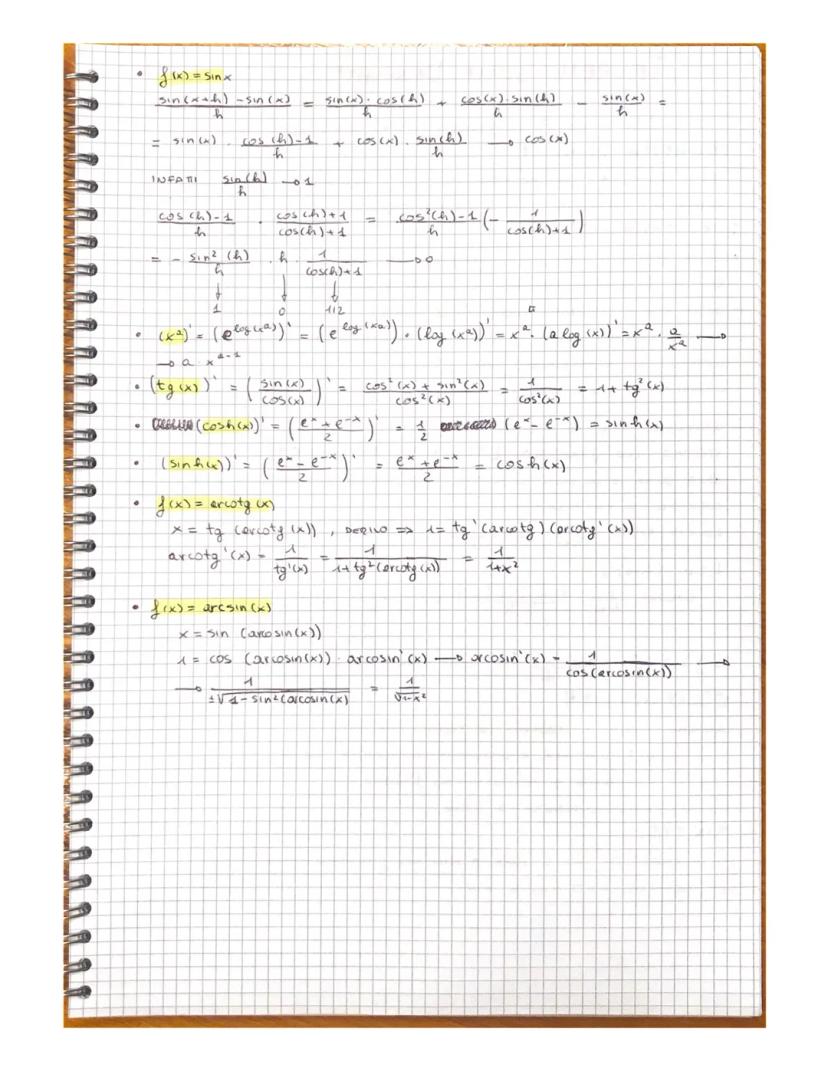 • f(x) = sin x
(sin(x+h) - sin(x))/h = (sin(x) · cos(h))/h + (cos(x) · sin(h))/h - sin(x)/h =
= sin(x) · (cos(h)-1)/h + cos(x) · sin(h)/h → cos(x)
INFATTI sin(h)/h → 1
(cos(h)-1)/h · (cos(h)+1)/(cos(h)+1) = (cos²(h)-1)/h (- 1/(cos(h)+1))
= - sin²(h)/h · h · 1/(cos(h)+1) → 0
↓ ↓ ↓
1 0 1/2
• (xᵃ)' = (e^log(xᵃ))' = (e^log(xᵃ)) · (log(xᵃ))' = xᵃ · (a log(x))' = xᵃ · a/xᵃ →
→ a x^(a-1)
• (tg(x))' = (sin(x)/cos(x))' = (cos²(x) + sin²(x))/cos²(x) = 1/cos²(x) = 1 + tg²(x)
• (cosh(x))' = ((eˣ + e⁻ˣ)/2)' = 1/2 (eˣ - e⁻ˣ) = sinh(x)
• (sinh(x))' = ((eˣ - e⁻ˣ)/2)' = (eˣ + e⁻ˣ)/2 = cosh(x)
• f(x) = arcotg(x)
x = tg (arcotg(x)), DERIVO ⇒ 1 = tg'(arcotg)(arcotg'(x))
arcotg'(x) = 1/tg'(x) = 1/(1+tg²(arcotg(x))) = 1/(1+x²)
• f(x) = arcsin(x)
x = sin (arcosin(x))
1 = cos (arcosin(x)) · arcosin'(x) → arcosin'(x) = 1/cos(arcosin(x)) →
→ 1/(±√(1 - sin²(arcosin(x)) = 1/√(1-x²)